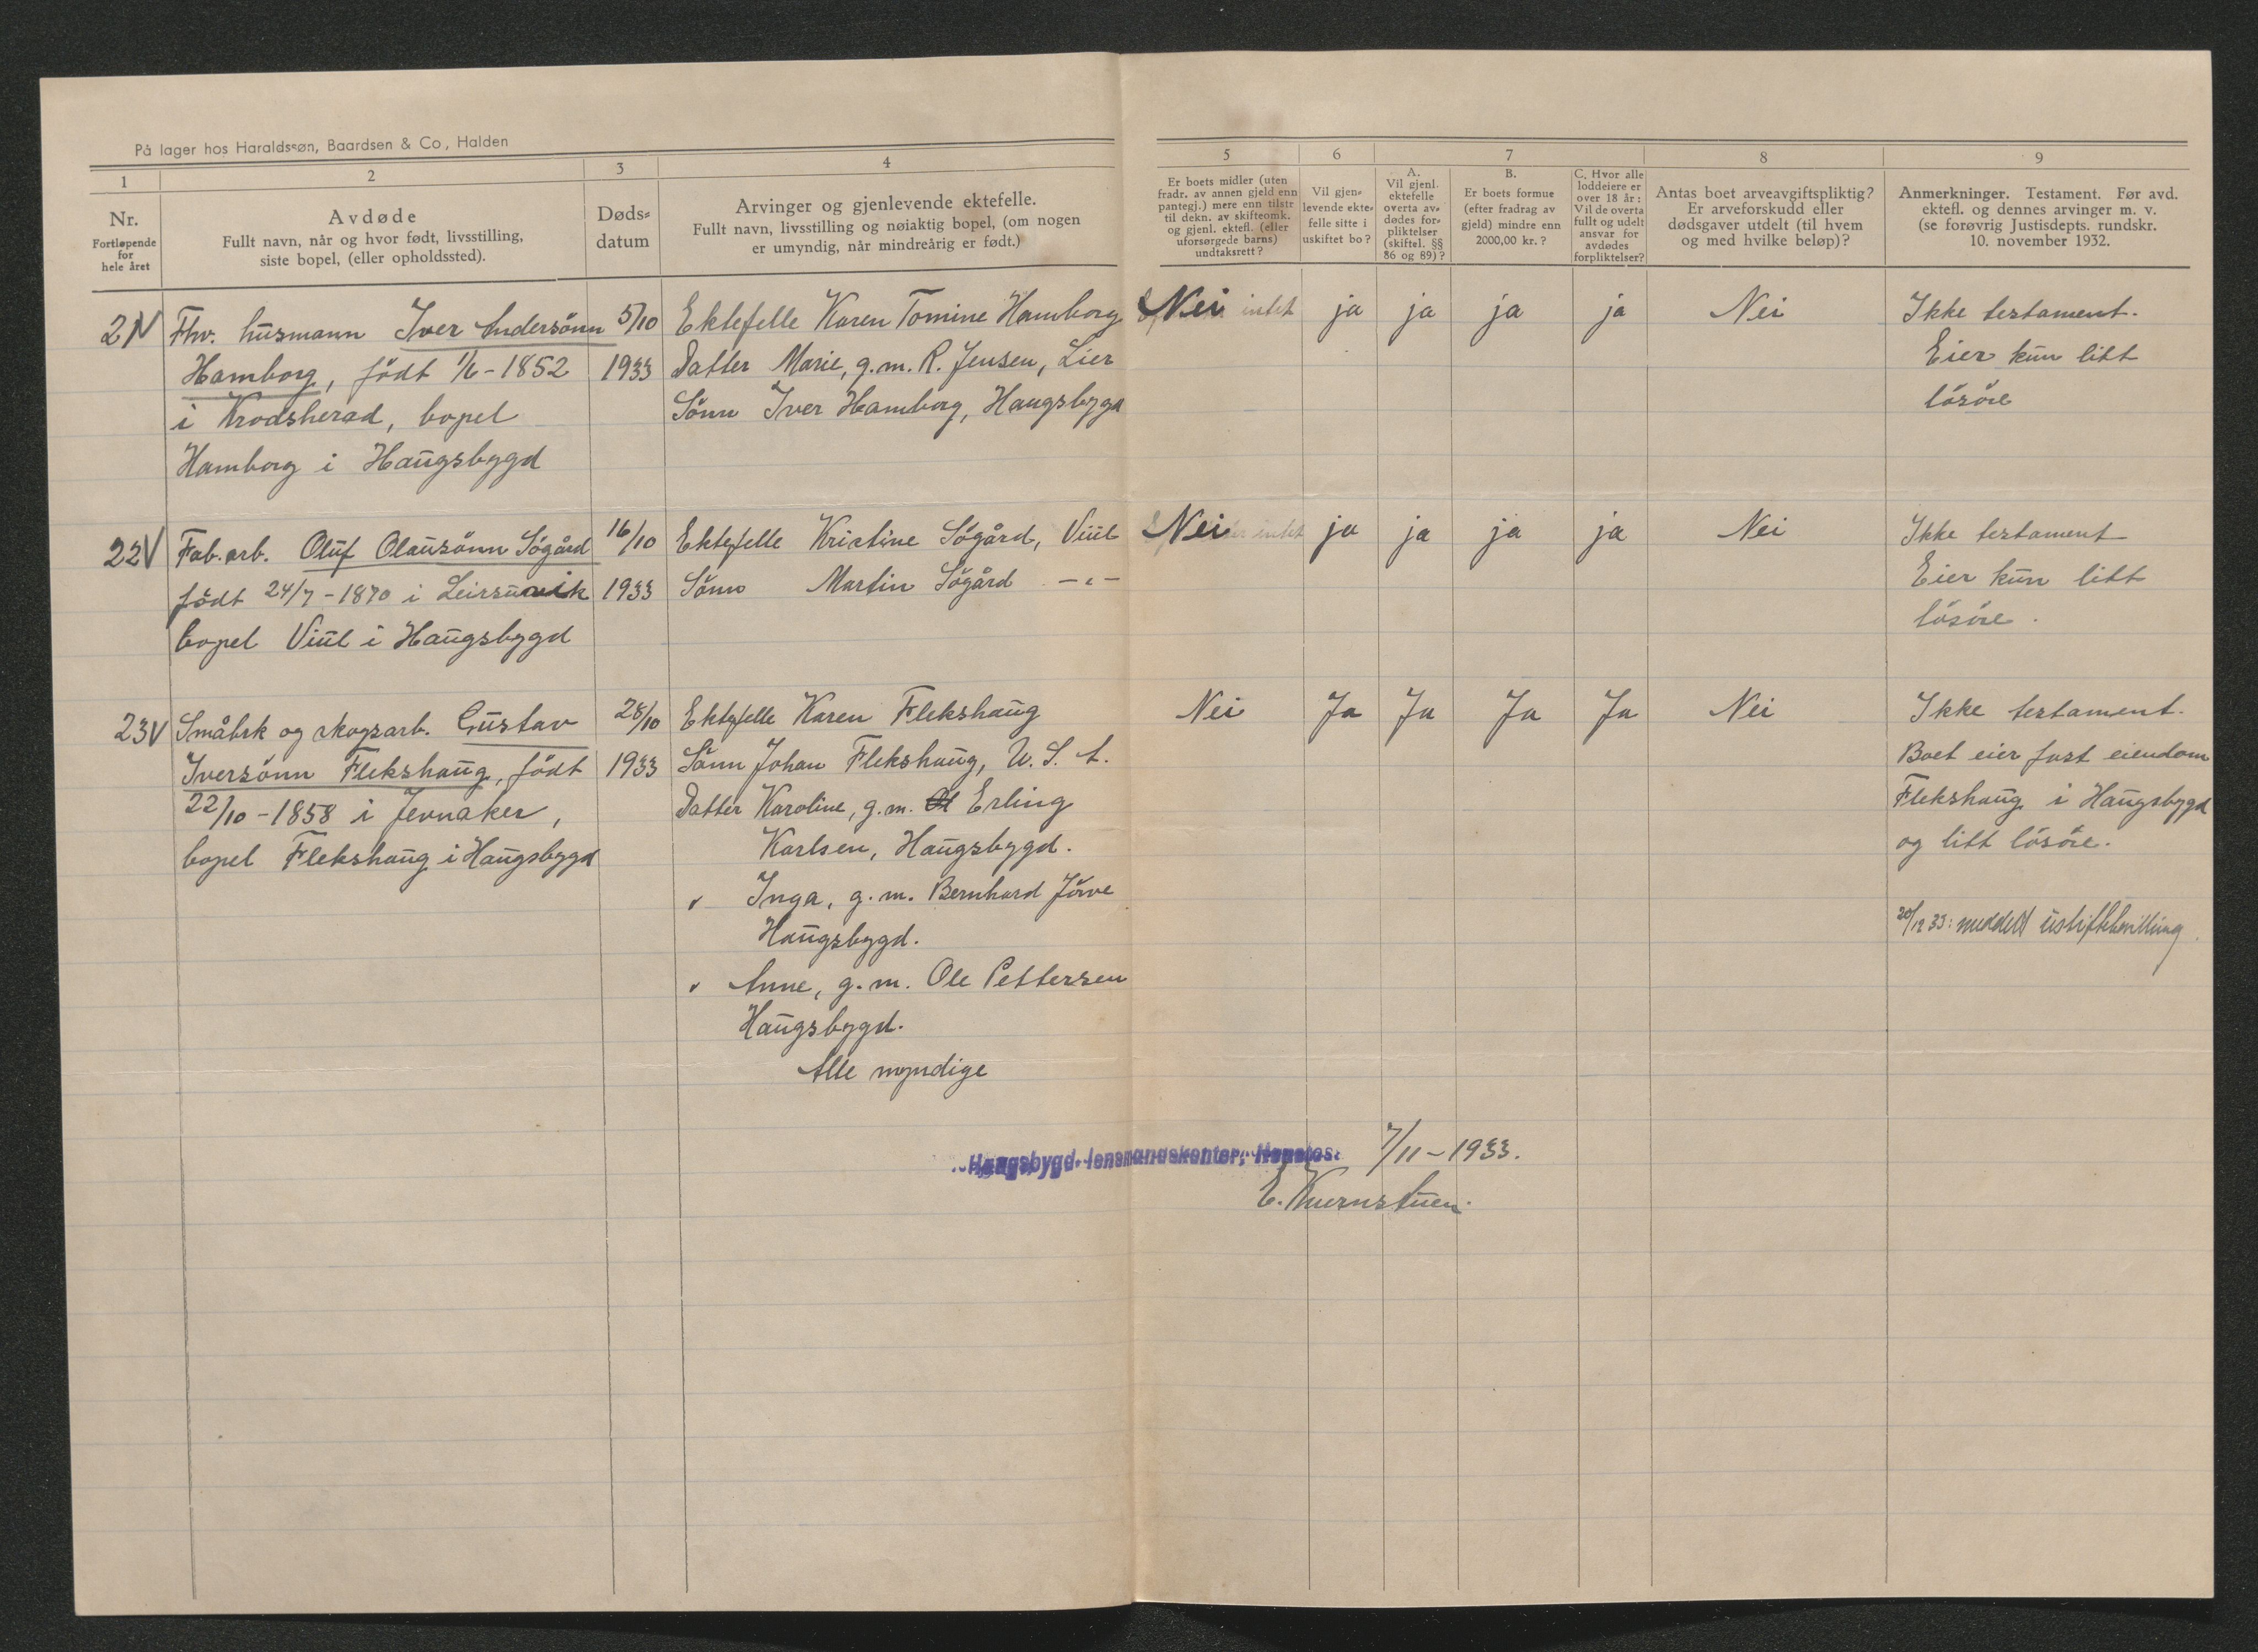 På lager hos Haraldssøn, Baardsen & Co, Halden
1 2 3 4 5 6 7 8 9
Nr.
Fortløpende
for
hele året
Avdøde
Fullt navn, når og hvor født, livsstilling,
siste bopel, (eller opholdssted).
Døds-
datum
Arvinger og gjenlevende ektefelle.
Fullt navn, livsstilling og nøiaktig bopel, (om nogen
er umyndig, når mindreårig er født.)
Er boets midler (uten
fradr. av annen gjeld enn
pantegj.) mere enn tilstr
til dekn. av skifteomk.
og gjenl. ektefl. (eller
uforsørgede barns)
undtaksrett?
Vil gjen-
levende ekte-
felle sitte i
uskiftet bo?
A.
Vil gjenl.
ektefelle
overta av-
dødes for-
pliktelser
(skiftel. §§
86 og 89)?
B.
Er boets formue
(efter fradrag av
gjeld) mindre enn
2000,00 kr.?
C. Hvor alle
loddeiere er
over 18 år:
Vil de overta
fullt og udelt
ansvar for
avdødes
forpliktelser?
Antas boet arveavgiftspliktig?
Er arveforskudd eller
dødsgaver utdelt (til hvem
og med hvilke beløp)?
Anmerkninger. Testament. Før avd.
ektefl. og dennes arvinger m. v.
(se forøvrig Justisdepts. rundskr.
10. november 1932.
21 V
Fhv. husmann Iver Andersönn
Hamborg, födt 1/6-1852
i Krodsherad, bopel
Hamborg i Haugsbygd
5/10
1933
Ektefelle Karen Tomine Hamborg
Datter Marie, g.m. R. Jensen, Lier
Sönn Iver Hamborg, Haugsbygd
Nei intet ja ja ja ja Nei
Ikke testament.
Eier kun litt
lösöre
22 V
Fab.arb. Oluf Olausönn Sögård
födt 24/7-1870 i Leirsunvik
bopel Viul i Haugsbygd
16/10
1933
Ektefelle Kristine Sögård, Viul
Sönn Martin Sögård -"-
Nei intet ja ja ja ja Nei
Ikke testament
Eier kun litt
lösöre.
23 V
Småbrk og skogsarb. Gustav
Iversönn Flekshaug, födt
22/10-1858 i Jevnaker,
bopel Flekshaug i Haugsbygd
28/10
1933
Ektefelle Karen Flekshaug
Sönn Johan Flekshaug, U.S.A.
Datter Karoline, g.m. Ol Erling
Karlsen, Haugsbygd.
" Inga, g.m. Bernhard Jörve
Haugsbygd.
" Anne, g.m. Ole Pettersen
Haugsbygd.
Alle myndige
Nei Ja Ja Ja Ja Nei
Ikke testament.
Boet eier fast eiendom
Flekshaug i Haugsbygd
og litt lösöre.
20/12 33: meddelt uskiftebevilling.
Haugsbygd lensmandskontor, Hønefoss. 7/11-1933.
E. Kvernstuen.